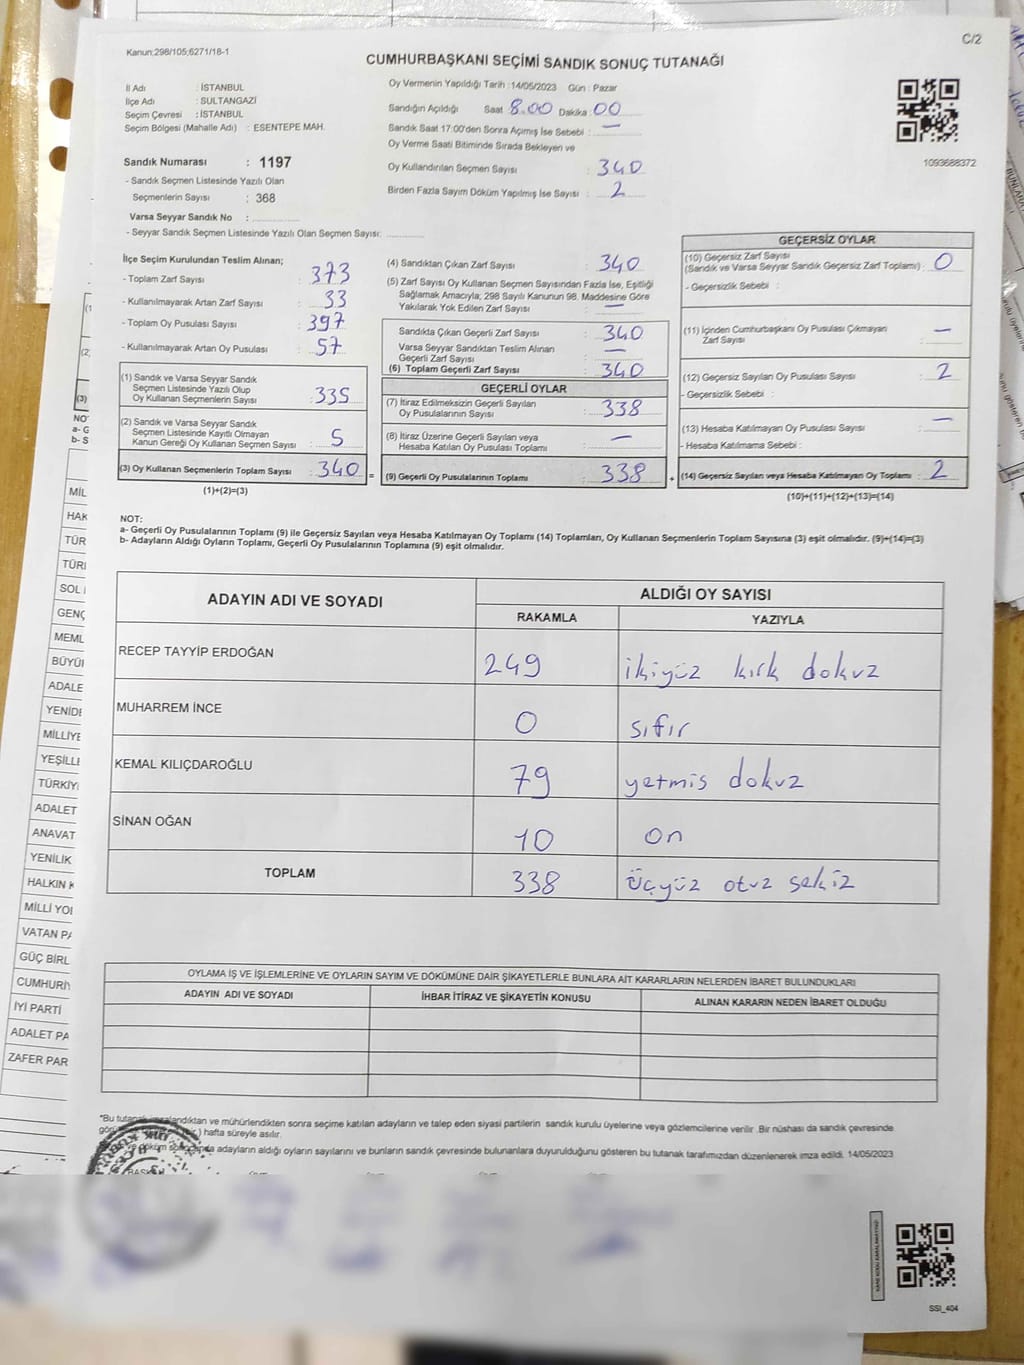 C/2
Kanun:298/105;6271/18-1
CUMHURBAŞKANI SEÇİMİ SANDIK SONUÇ TUTANAĞI
İl Adı : İSTANBUL
İlçe Adı : SULTANGAZİ
Seçim Çevresi : İSTANBUL
Seçim Bölgesi (Mahalle Adı) : ESENTEPE MAH.
Sandık Numarası : 1197
- Sandık Seçmen Listesinde Yazılı Olan
Seçmenlerin Sayısı : 368
Varsa Seyyar Sandık No :
- Seyyar Sandık Seçmen Listesinde Yazılı Olan Seçmen Sayısı:
Oy Vermenin Yapıldığı Tarih :14/05/2023 Gün : Pazar
Sandığın Açıldığı Saat 8.00 Dakika 00
Sandık Saat 17:00'den Sonra Açımış İse Sebebi : —
Oy Verme Saati Bitiminde Sırada Bekleyen ve
Oy Kullandırılan Seçmen Sayısı : 340
Birden Fazla Sayım Döküm Yapılmış İse Sayısı : 2
1093688372
İlçe Seçim Kurulundan Teslim Alınan;
- Toplam Zarf Sayısı : 373
- Kullanılmayarak Artan Zarf Sayısı : 33
- Toplam Oy Pusulası Sayısı : 397
- Kullanılmayarak Artan Oy Pusulası : 57
(1) Sandık ve Varsa Seyyar Sandık
Seçmen Listesinde Yazılı Olup
Oy Kullanan Seçmenlerin Sayısı : 335
(2) Sandık ve Varsa Seyyar Sandık
Seçmen Listesinde Kayıtlı Olmayan
Kanun Gereği Oy Kullanan Seçmen Sayısı : 5
(3) Oy Kullanan Seçmenlerin Toplam Sayısı : 340 =
(1)+(2)=(3)
(4) Sandıktan Çıkan Zarf Sayısı : 340
(5) Zarf Sayısı Oy Kullanan Seçmen Sayısından Fazla İse, Eşitliği
Sağlamak Amacıyla; 298 Sayılı Kanunun 98. Maddesine Göre
Yakılarak Yok Edilen Zarf Sayısı : —
Sandıkta Çıkan Geçerli Zarf Sayısı : 340
Varsa Seyyar Sandıktan Teslim Alınan
Geçerli Zarf Sayısı : —
(6) Toplam Geçerli Zarf Sayısı : 340
GEÇERLİ OYLAR
(7) İtiraz Edilmeksizin Geçerli Sayılan
Oy Pusulalarının Sayısı : 338
(8) İtiraz Üzerine Geçerli Sayılan veya
Hesaba Katılan Oy Pusulası Toplamı : —
(9) Geçerli Oy Pusulalarının Toplamı : 338 +
GEÇERSİZ OYLAR
(10) Geçersiz Zarf Sayısı
(Sandık ve Varsa Seyyar Sandık Geçersiz Zarf Toplamı) : 0
- Geçersizlik Sebebi :
(11) İçinden Cumhurbaşkanı Oy Pusulası Çıkmayan
Zarf Sayısı : —
(12) Geçersiz Sayılan Oy Pusulası Sayısı : 2
- Geçersizlik Sebebi :
(13) Hesaba Katılmayan Oy Pusulası Sayısı : —
- Hesaba Katılmama Sebebi :
(14) Geçersiz Sayılan veya Hesaba Katılmayan Oy Toplamı : 2
(10)+(11)+(12)+(13)=(14)
NOT:
a- Geçerli Oy Pusulalarının Toplamı (9) ile Geçersiz Sayılan veya Hesaba Katılmayan Oy Toplamı (14) Toplamları, Oy Kullanan Seçmenlerin Toplam Sayısına (3) eşit olmalıdır. (9)+(14)=(3)
b- Adayların Aldığı Oyların Toplamı, Geçerli Oy Pusulalarının Toplamına (9) eşit olmalıdır.
ADAYIN ADI VE SOYADI ALDIĞI OY SAYISI
RAKAMLA YAZIYLA
RECEP TAYYİP ERDOĞAN 249 ikiyüz kırk dokuz
MUHARREM İNCE 0 sıfır
KEMAL KILIÇDAROĞLU 79 yetmis dokuz
SİNAN OĞAN 10 on
TOPLAM 338 üçyüz otuz sekiz
OYLAMA İŞ VE İŞLEMLERİNE VE OYLARIN SAYIM VE DÖKÜMÜNE DAİR ŞİKAYETLERLE BUNLARA AİT KARARLARIN NELERDEN İBARET BULUNDUKLARI
ADAYIN ADI VE SOYADI İHBAR İTİRAZ VE ŞİKAYETİN KONUSU ALINAN KARARIN NEDEN İBARET OLDUĞU
*Bu tutanak imzalandıktan ve mühürlendikten sonra seçime katılan adayların ve talep eden siyasi partilerin sandık kurulu üyelerine veya gözlemcilerine verilir .Bir nüshası da sandık çevresinde
) hafta süreyle asılır.
adayların aldığı oyların sayılarını ve bunların sandık çevresinde bulunanlara duyurulduğunu gösteren bu tutanak tarafımızdan düzenlenerek imza edildi. 14/05/2023
SSI_404
MİL
HAK
TÜR
TÜRI
SOL
GENÇ
MEML
BÜYÜ
ADALE
YENİDE
MİLLİYE
YEŞİLLE
TÜRKİY
ADALET
ANAVAT
YENİLİK
HALKIN
MİLLİ YOL
VATAN PA
GÜÇ BİRL
CUMHURİY
İYİ PARTİ
ADALET PA
ZAFER PAR